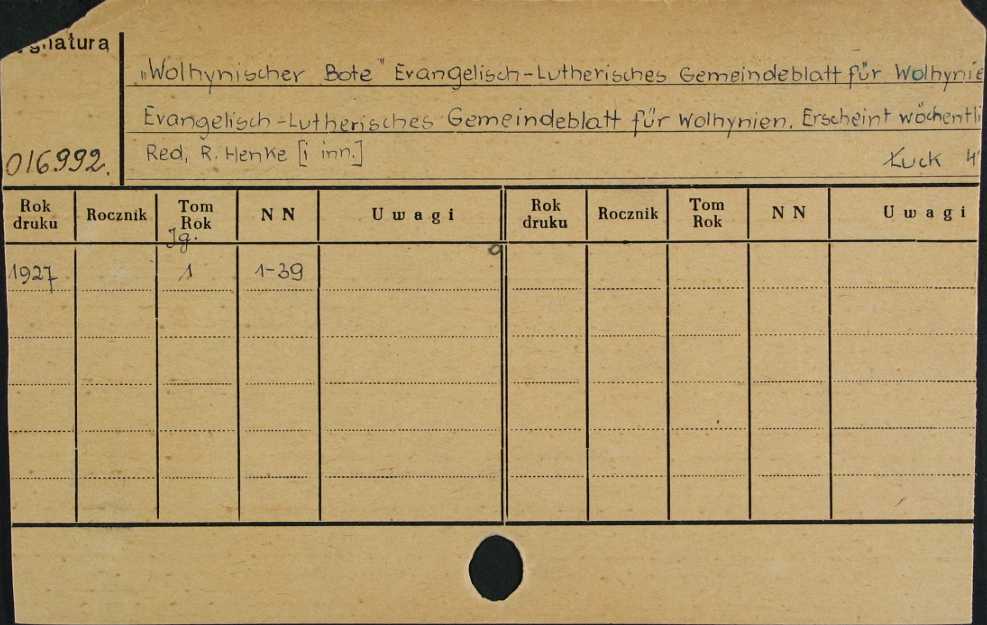 ygnatura
„Wolhynischer Bote" Evangelisch-Lutherisches Gemeindeblatt für Wolhynie
Evangelisch-Lutherisches Gemeindeblatt für Wolhynien. Erscheint wöchentli
016992. Red, R. Henke [i inn.] Łuck 4°
Rok druku Rocznik Tom Rok N N Uwagi Rok druku Rocznik Tom Rok N N Uwagi
Jg.
1927 1 1-39